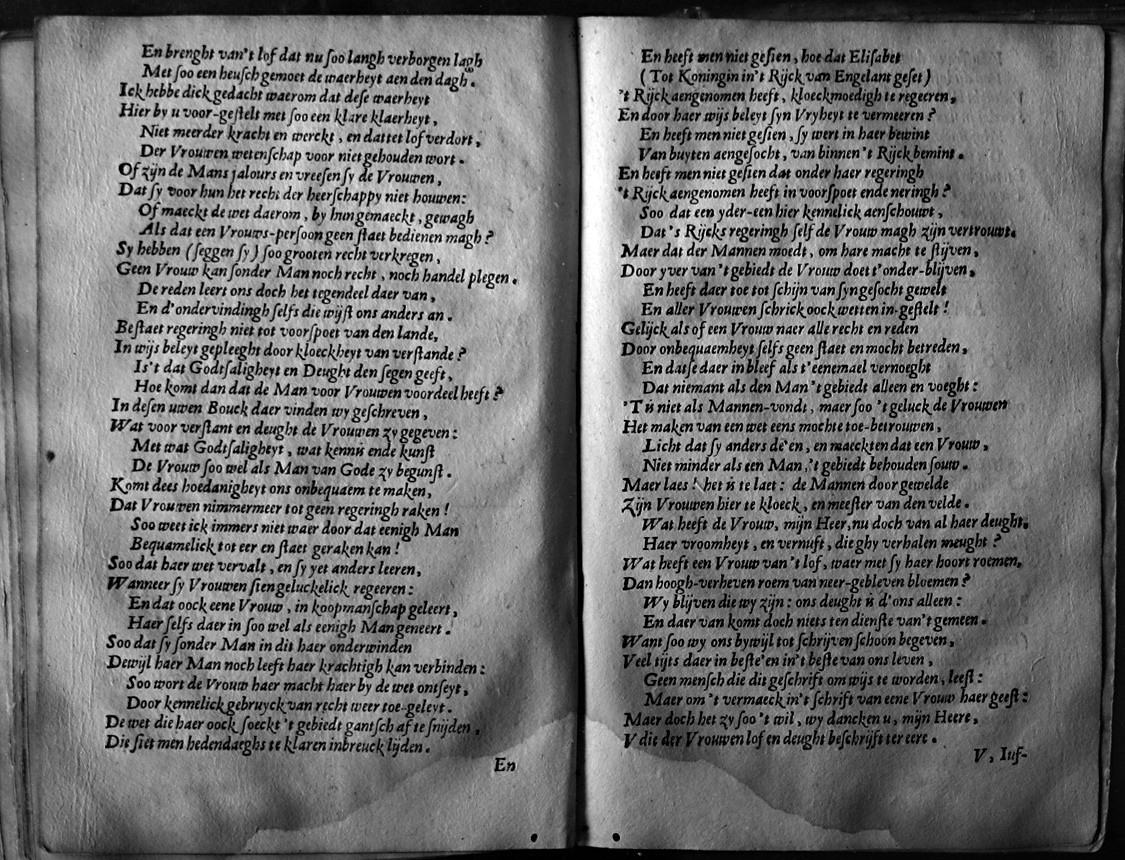 En brenght van't lof dat nu soo langh verborgen lagh
Met soo een heusch gemoet de waerheyt aen den dagh.
Ick hebbe dick gedacht waerom dat dese waerheyt
Hier by u voor-gestelt met soo een klare klaerheyt,
Niet meerder kracht en werckt, en dattet lof verdort,
Der Vrouwen wetenschap voor niet gehouden wort.
Of zijn de Mans jalours en vreesen sy de Vrouwen,
Dat sy voor hun het recht der heerschappy niet houwen:
Of maeckt de wet daerom, by hun gemaeckt, gewagh
Als dat een Vrouws-persoon geen staet bedienen magh?
Sy hebben (seggen sy) soo grooten recht verkregen,
Geen Vrouw kan sonder Man noch recht, noch handel plegen.
De reden leert ons doch het tegendeel daer van,
En d'ondervindingh selfs die wijst ons anders an.
Bestaet regeringh niet tot voorspoet van den lande,
In wijs beleyt gepleeght door kloeckheyt van verstande?
Is't dat Godtsaligheyt en Deught den segen geeft,
Hoe komt dan dat de Man voor Vrouwen voordeel heeft?
In desen uwen Bouck daer vinden wy geschreven,
Wat voor verstant en deught de Vrouwen zy gegeven:
Met wat Godtsaligheyt, wat kennis ende kunst
De Vrouw soo wel als Man van Gode zy begunst.
Komt dees hoedanigheyt ons onbequaem te maken,
Dat Vrouwen nimmermeer tot geen regeringh raken!
Soo weet ick immers niet waer door dat eenigh Man
Bequamelick tot eer en staet geraken kan!
Soo dat haer wet vervalt, en sy yet anders leeren,
Wanneer sy Vrouwen sien geluckelick regeeren:
En dat oock eene Vrouw, in koopmanschap geleert,
Haer selfs daer in soo wel als eenigh Man geneert.
Soo dat sy sonder Man in dit haer onderwinden
Dewijl haer Man noch leeft haer krachtigh kan verbinden:
Soo wort de Vrouw haer macht haer by de wet ontseyt,
Door kennelick gebruyck van recht weer toe-geleyt.
De wet die haer oock soeckt 't gebiedt gantsch af te snijden,
Die siet men hedendaeghs te klaren inbreuck lijden.
En
En heeft men niet gesien, hoe dat Elisabet
(Tot Koningin in't Rijck van Engelant geset)
't Rijck aengenomen heeft, kloeckmoedigh te regeeren,
En door haer wijs beleyt syn Vryheyt te vermeeren?
En heeft men niet gesien, sy wert in haer bewint
Van buyten aengesocht, van binnen 't Rijck bemint.
En heeft men niet gesien dat onder haer regeringh
't Rijck aengenomen heeft in voorspoet ende neringh?
Soo dat een yder-een hier kennelick aenschouwt,
Dat 's Rijcks regeringh self de Vrouw magh zijn vertrouwt.
Maer dat der Mannen moedt, om hare macht te stijven,
Door yver van't gebiedt de Vrouw doet t'onder-blijven,
En heeft daer toe tot schijn van syn gesocht gewelt
En aller Vrouwen schrick oock wetten in-gestelt!
Gelijck als of een Vrouw naer alle recht en reden
Door onbequaemheyt selfs geen staet en mocht betreden,
En datse daer in bleef als t'eenemael vernoeght
Dat niemant als den Man 't gebiedt alleen en voeght:
'T is niet als Mannen-vondt, maer soo 't geluck de Vrouwen
Het maken van een wet eens mochte toe-betrouwen,
Licht dat sy anders de'en, en maeckten dat een Vrouw,
Niet minder als een Man, 't gebiedt behouden souw.
Maer laes! het is te laet: de Mannen door gewelde
Zijn Vrouwen hier te kloeck, en meester van den velde.
Wat heeft de Vrouw, mijn Heer, nu doch van al haer deught,
Haer vroomheyt, en vernuft, die ghy verhalen meught?
Wat heeft een Vrouw van't lof, waer met sy haer hoort roemen,
Dan hoogh-verheven roem van neer-gebleven bloemen?
Wy blijven die wy zijn: ons deught is d'ons alleen:
En daer van komt doch niets ten dienste van't gemeen.
Want soo wy ons bywijl tot schrijven schoon begeven,
Veel tijts daer in beste'en in't beste van ons leven,
Geen mensch die dit geschrift om wijs te worden, leest:
Maer om 't vermaeck in't schrift van eene Vrouw haer geest:
Maer doch het zy soo 't wil, wy dancken u, mijn Heere,
V die der Vrouwen lof en deught beschrijft ter eere.
V, Iuf-